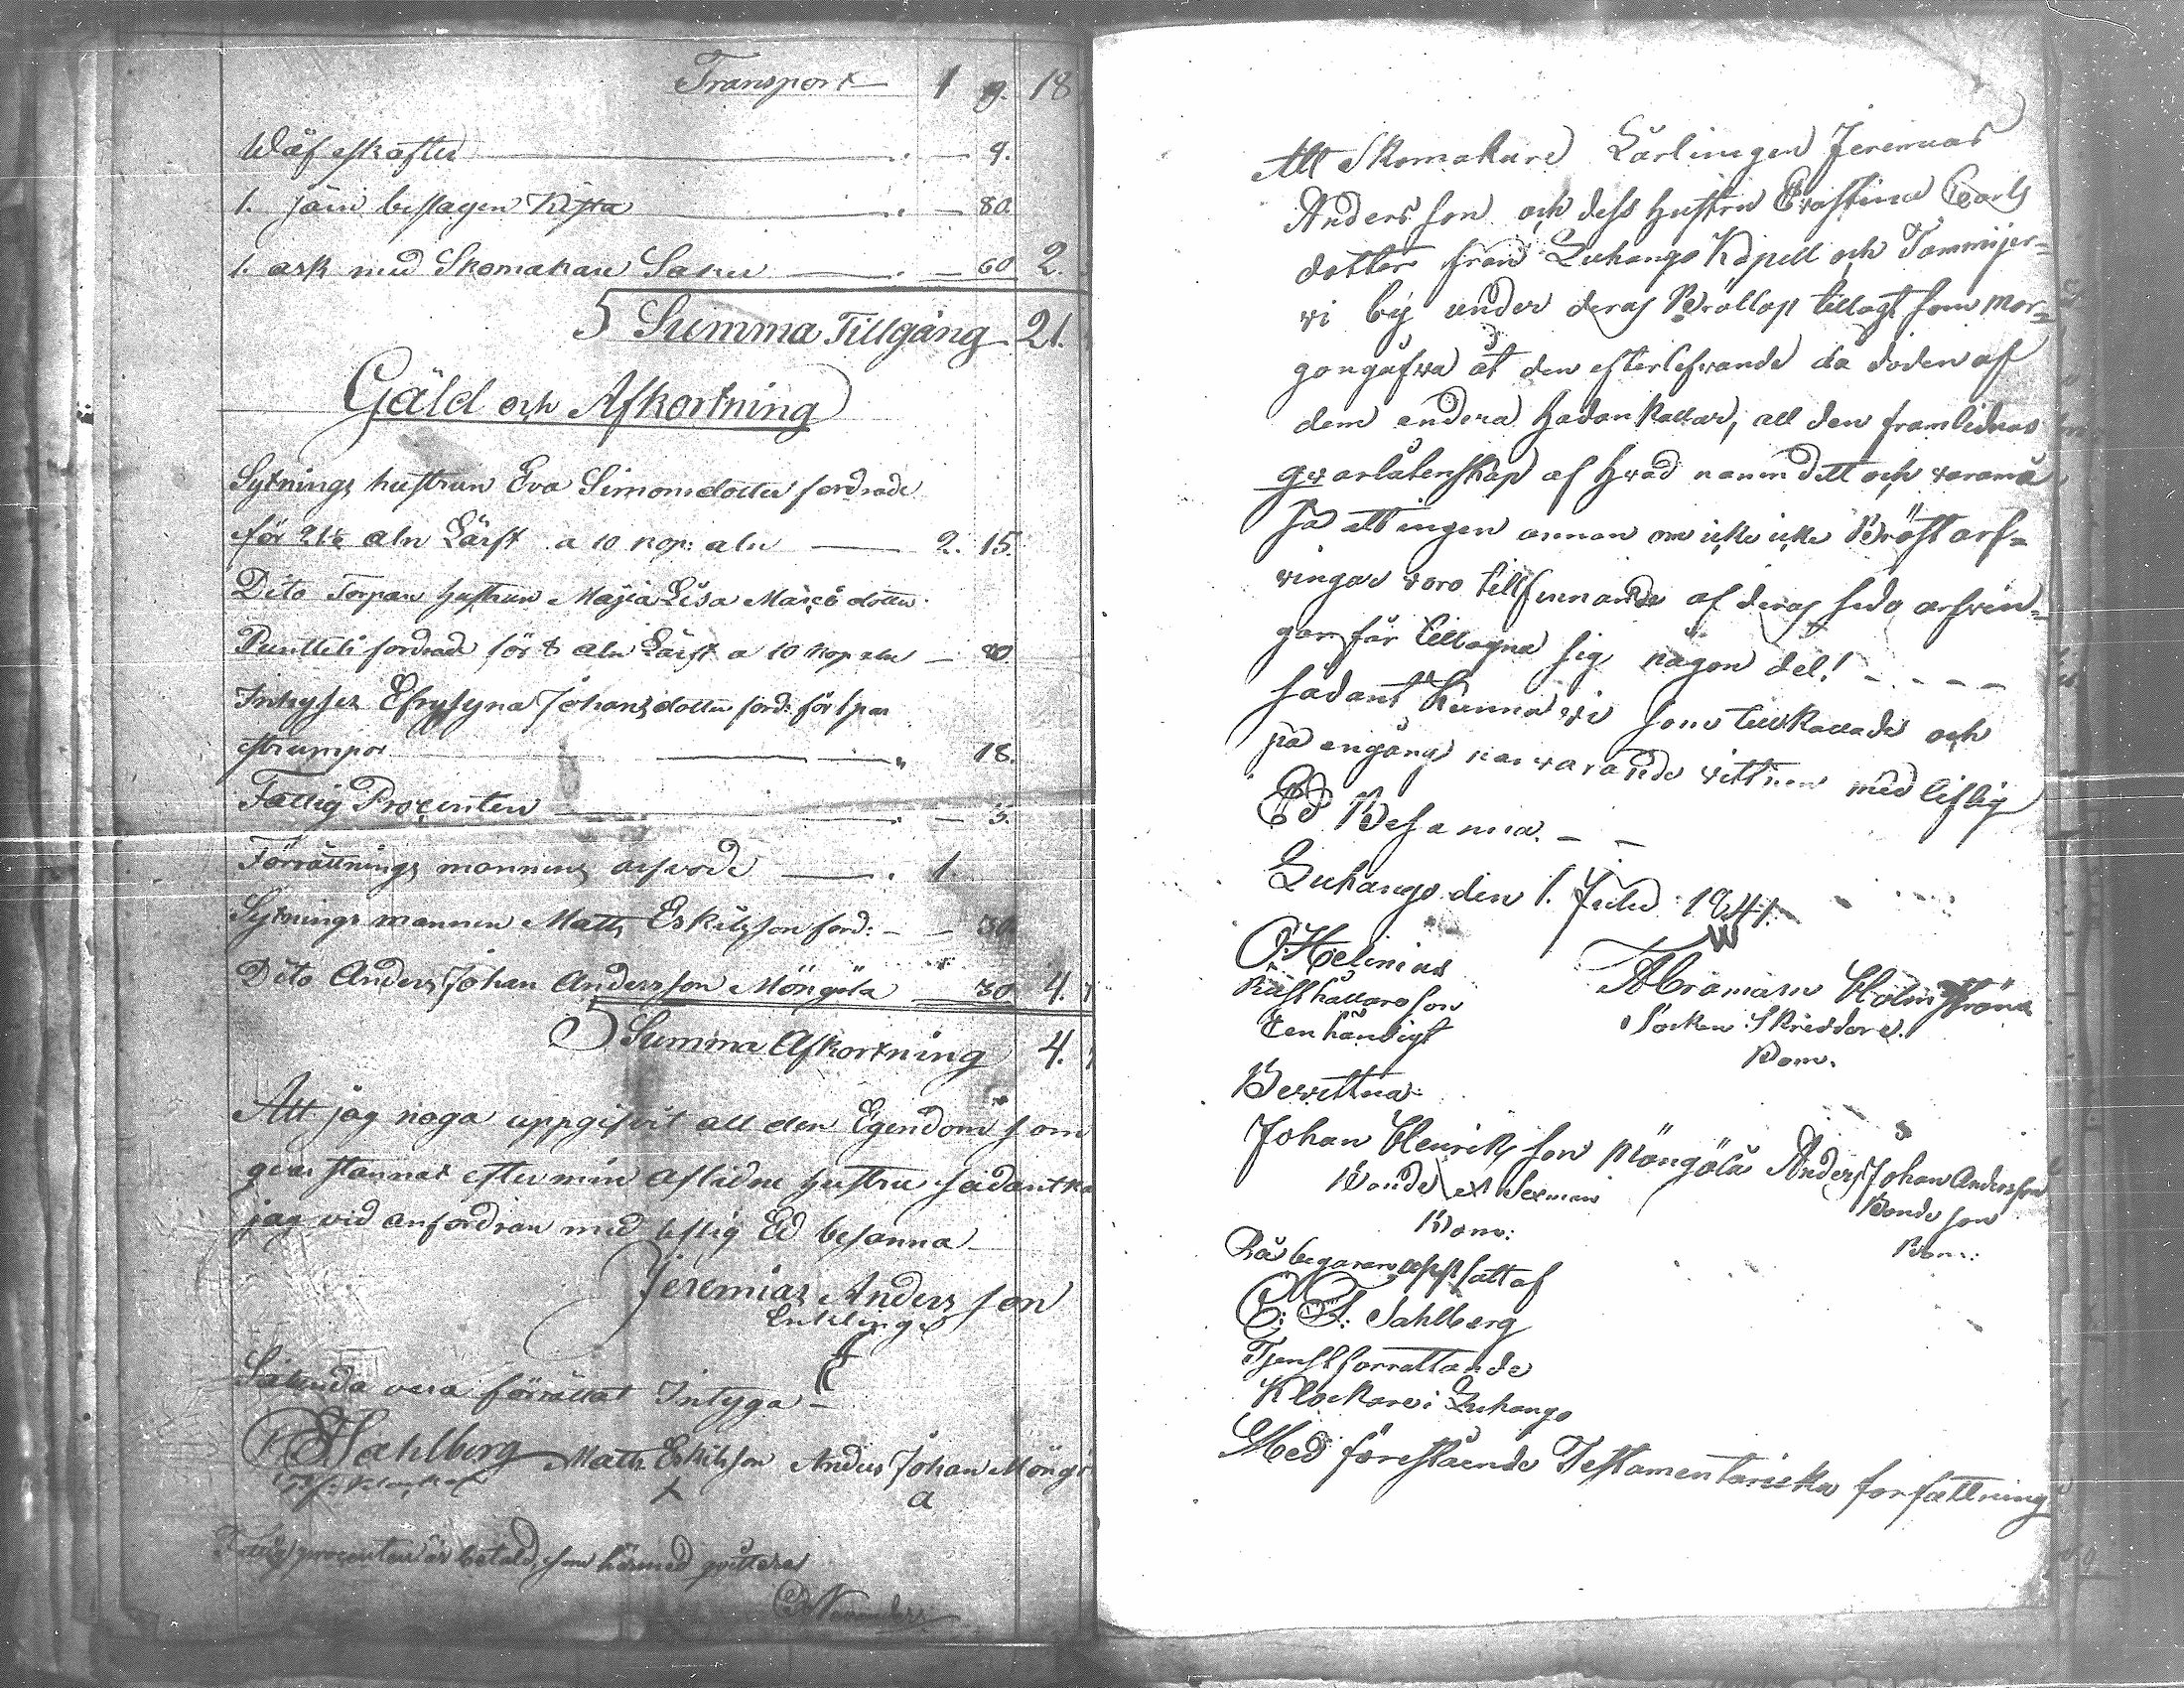 Transport — 1 9. 18
Wäfskafter — . — 9.
1. järn beslagen Kista — . — 80.
1. ask med Skomakare Saker — . — 60 2.
Summa Tillgång 21.
Gäld och Afkortning
Sytnings hustrun Eva Simonsdotter fordrade
för 21½ aln Lärft a 10 kop: aln — 2. 15.
Dito Torpare hustrun Maja Lisa Matsdotter
fordrade för 8 aln Lärft a 10 kop aln — 80
Inhyses Efrosyna Johansdotter ford: för 1 par
strumpor — 18.
Fattig Procenten — . — 3.
Förrättnings mannens arfvode — . 1.
Sytnings mannen Matts Eskilsson ford: — — 30.
Dito Anders Johan Andersson Möngölä — 30 4.
Summa Afkortning 4.
Att jag noga uppgifvit all den Egendom som
qvar stannat efter min aflidne hustru sådant kan
jag vid anfordran med liflig Ed besanna —
Jeremias Andersson
Enkling
Sålunda vara förrättat Intyga —
Sahlberg Matts Eskilsson Anders Johan Möngö
x a
Fattig procenten är betald, som härmed qvitteras
Att Skomakare Lärlingen Jeremias
Andersson och dess hustru Evastina Carls
dotter från Luhango Kapell och Tammijer=
vi by under deras Brollop tillagt som mor=
gongåfva åt den efterlefvande då döden af
dem endera hädankallar, all den framlidnas
qvarlåtenskap af hvad namn dett och varamå
så att ingen annan om icke icke Bröst arf=
vingar voro tillfinnandes af deras sido arfvin=
gar får tillägna sig någon del! - - - -
sådant kunna vi som tillkallade och
på engång närvarande vittnen med liflig
Ed Besanna. — —
Luhango den 1. Julii 1841.
O: Helenius
Rusthållareson
Egenhändigt
Abraham Holmström
Socken Skreddare.
Bom.
Bevittna:
Johan Henriksson Möngölä Anders Johan Andersson
Bonde ex Sexman Bondeson
Bom: Bom:
På begäran uppsatt af
C: F: Sahlberg
Tjenstförrättande
Klockare i Luhango
Med förestående Testamentariska författning